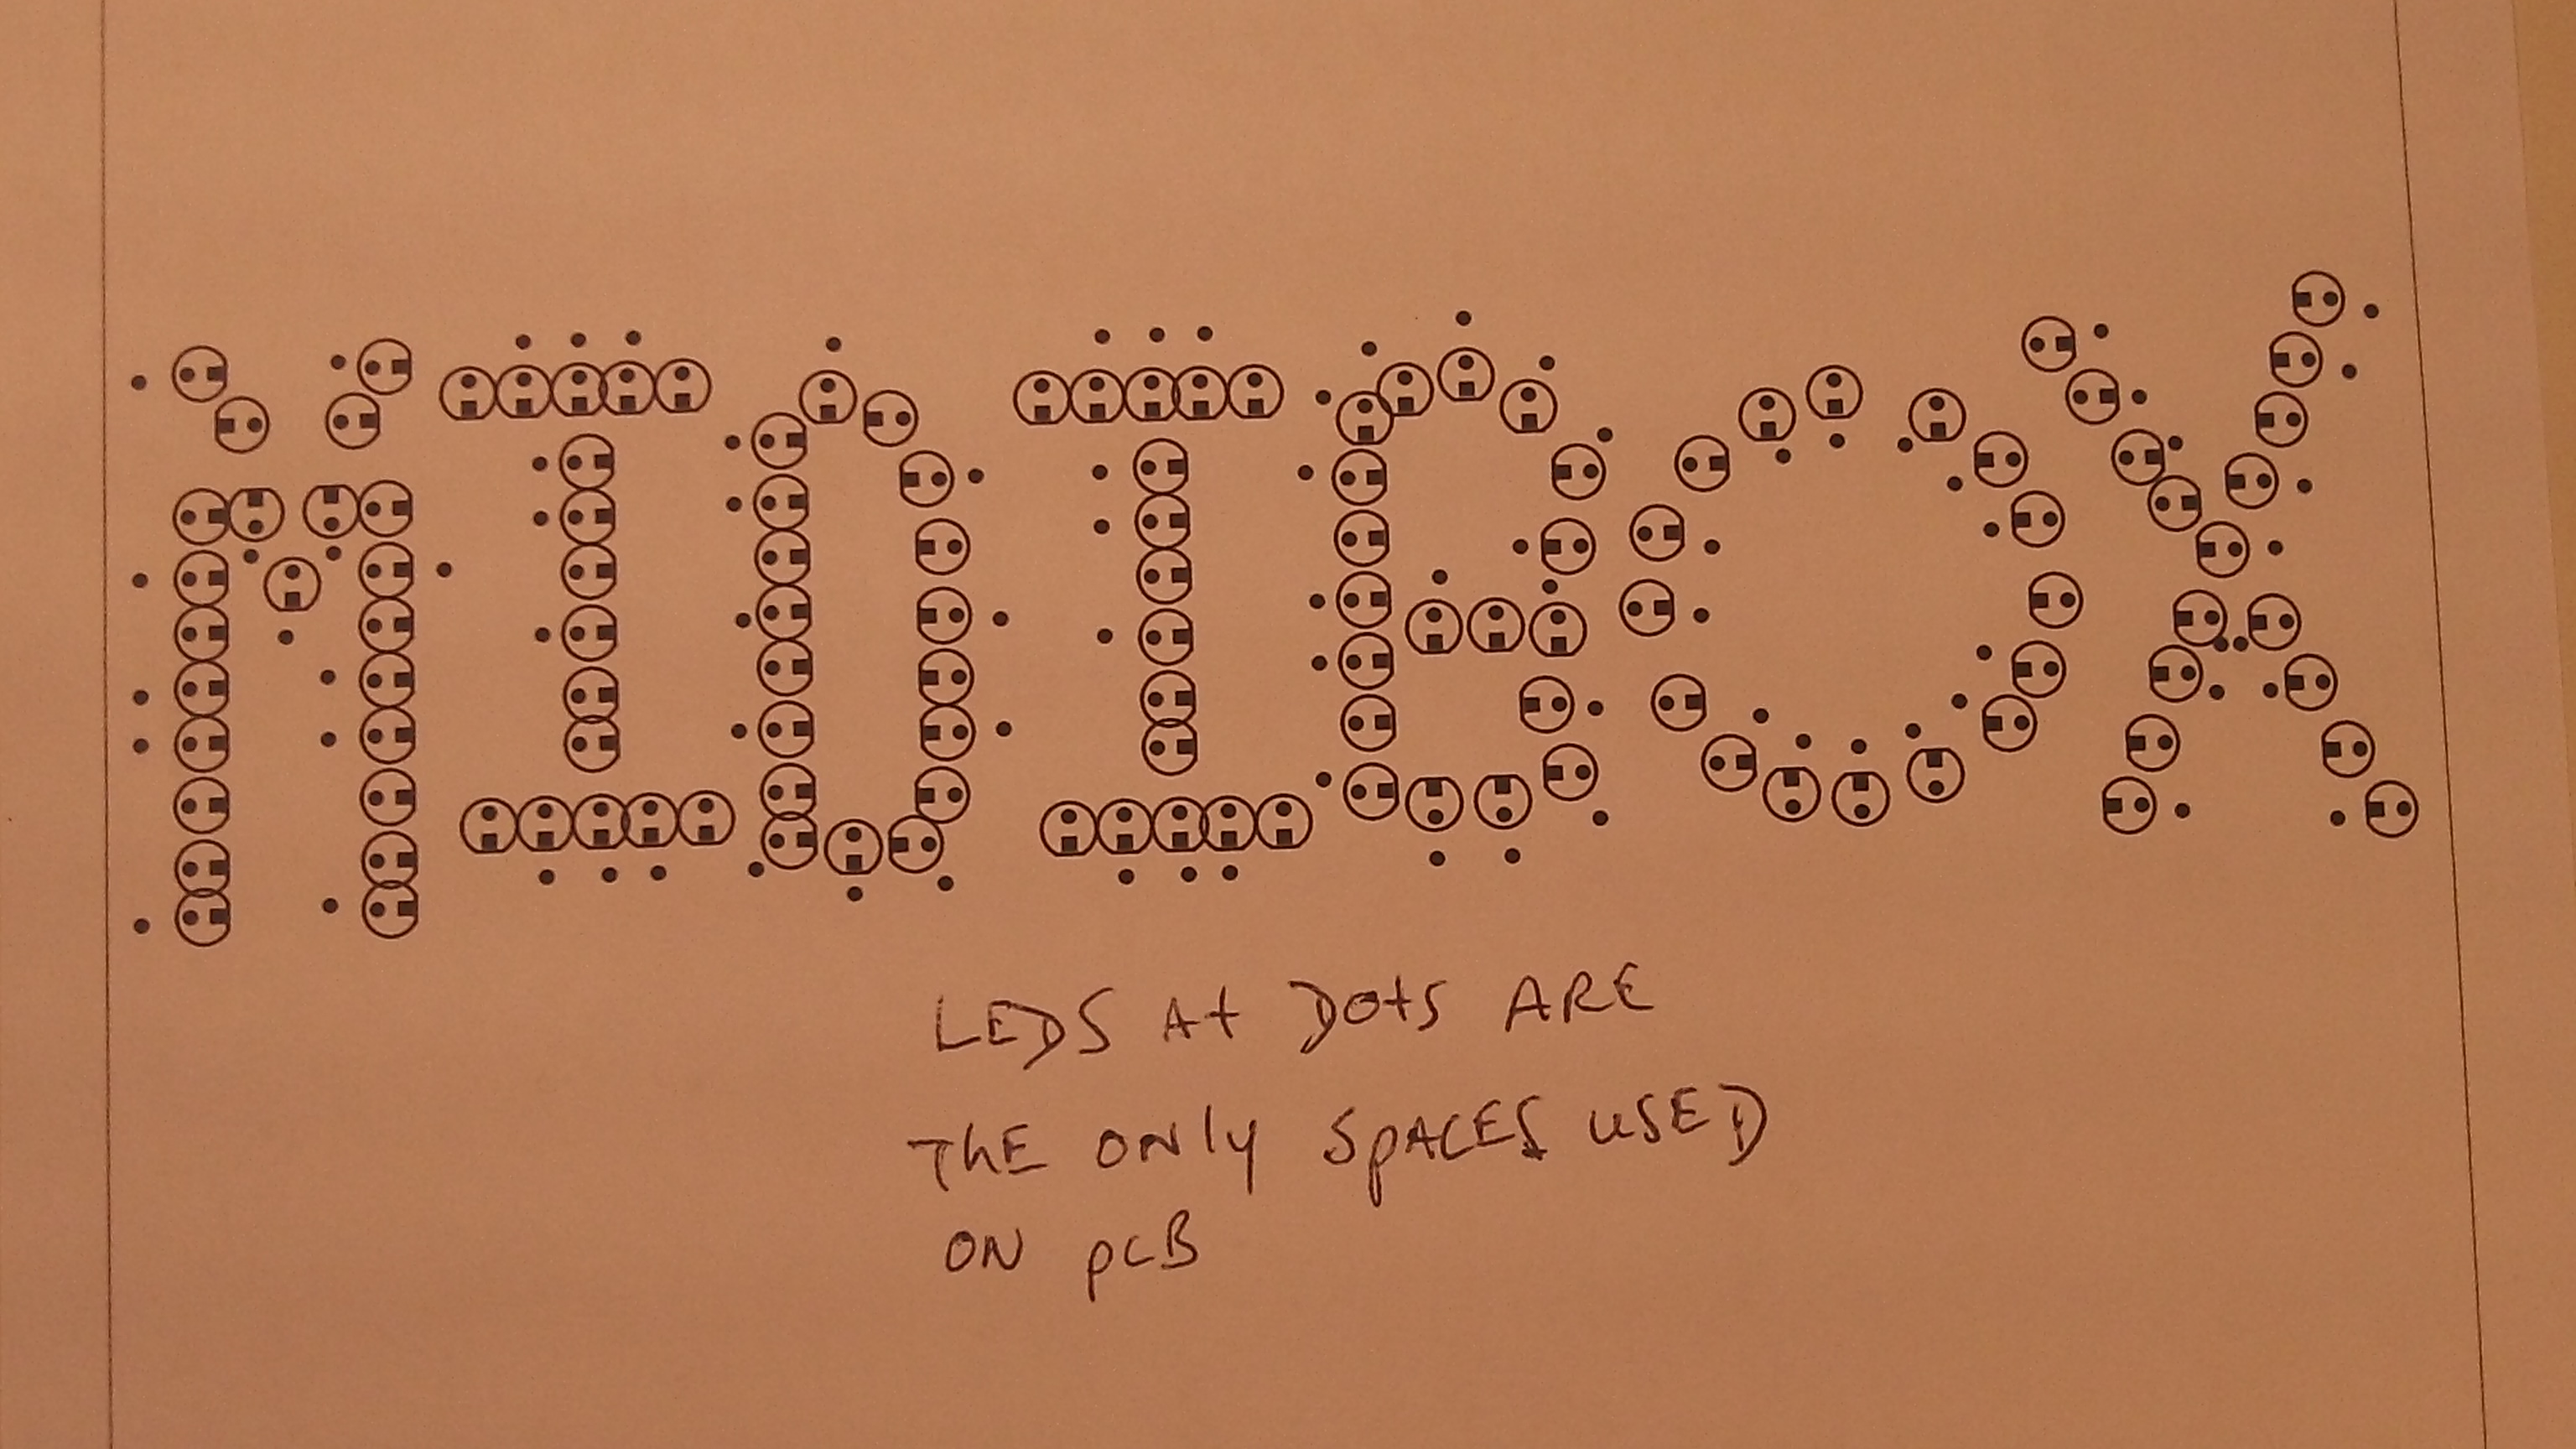 MIDIBOX
LEDS At Dots ARE
ThE ONly SpACES uSED
ON pcB